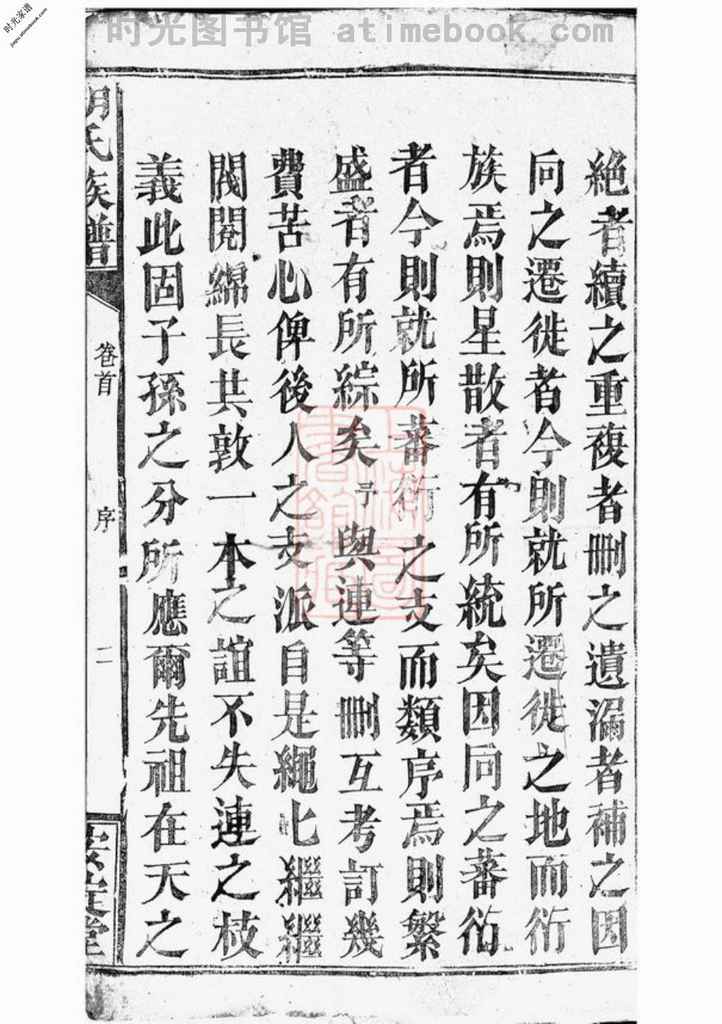 时光图书馆 atimebook.com
时光家谱
jiapu.atimebook.com
絶者續之重複者刪之遺漏者補之因
向之遷徙者今則就所遷徙之地而衍
族焉則星散者有所統矣因向之蕃衍
者今則就所蕃衍之支而類序焉則繁
盛者有所綜矣與連等刪互考訂幾
費苦心俾後人之支派自是繩匕繼繼
閥閱綿長共敦一本之誼不失連之枝
義此固子孫之分所應爾先祖在天之
氏族譜
卷首
序
二
堂